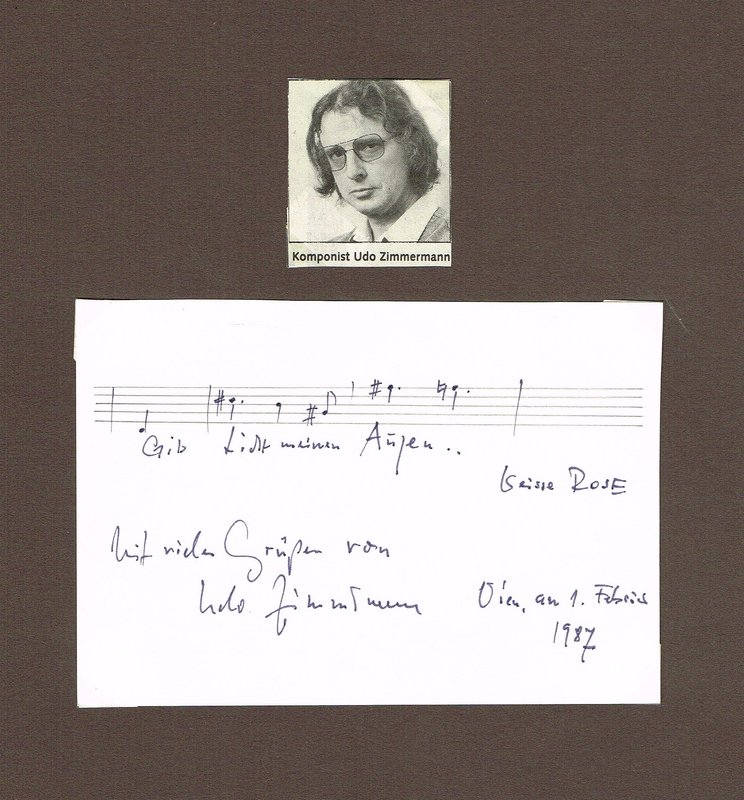 Komponist Udo Zimmermann
Gib Licht meinen Augen..
Weisse ROSE
Mit vielen Grüßen von
Udo Zimmermann
Wien, am 1. Februar
1987